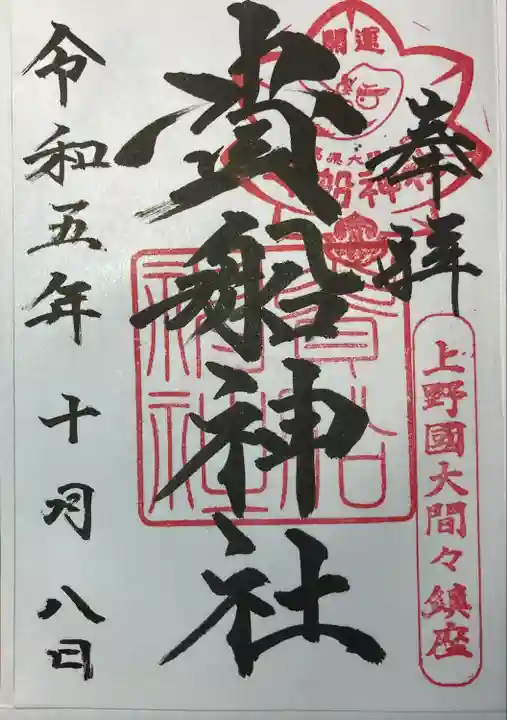 奉拝
上野國大間々鎮座
開運
貴船神社
貴船
神社
令和五年十月八日